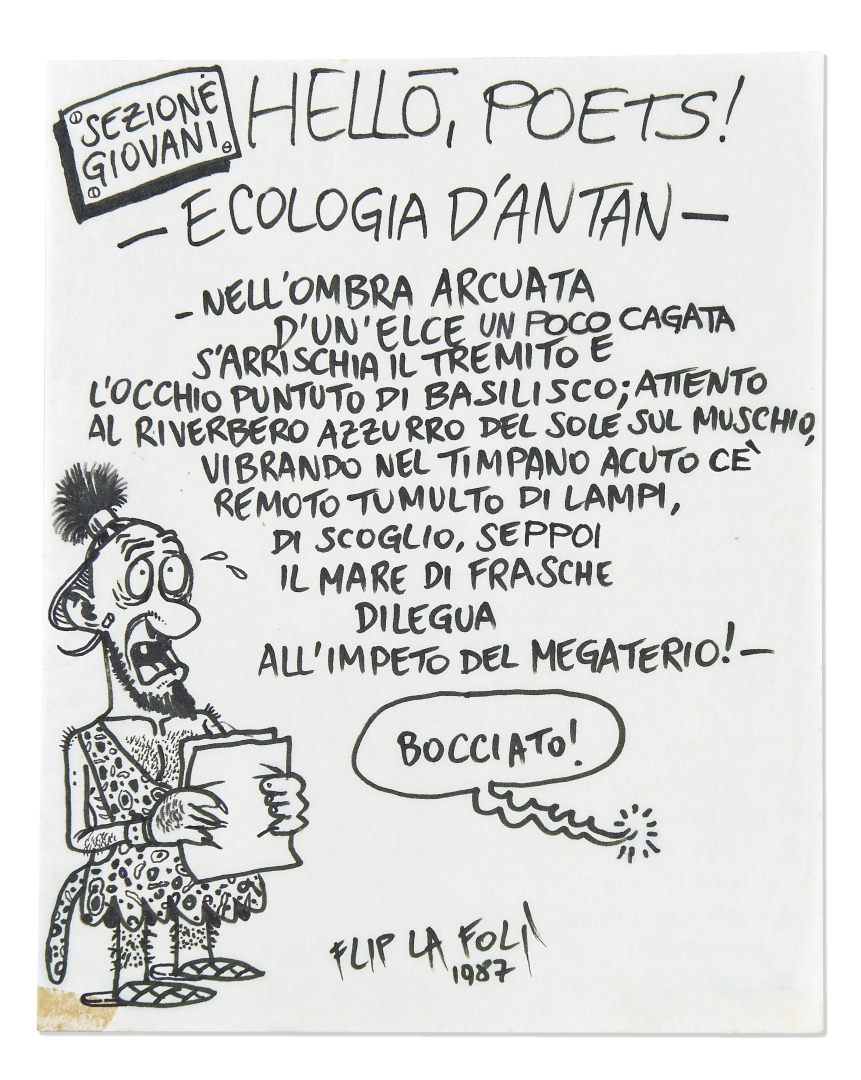 SEZIONE
GIOVANI
HELLŌ, POETS!
— ECOLOGIA D'ANTAN —
– NELL'OMBRA ARCUATA
D'UN'ELCE UN POCO CAGATA
S'ARRISCHIA IL TREMITO E
L'OCCHIO PUNTUTO DI BASILISCO; ATTENTO
AL RIVERBERO AZZURRO DEL SOLE SUL MUSCHIO,
VIBRANDO NEL TIMPANO ACUTO CE`
REMOTO TUMULTO DI LAMPI,
DI SCOGLIO, SEPPOI
IL MARE DI FRASCHE
DILEGUA
ALL'IMPETO DEL MEGATERIO! —
BOCCIATO!
FLIP LA FOLÌ
1987